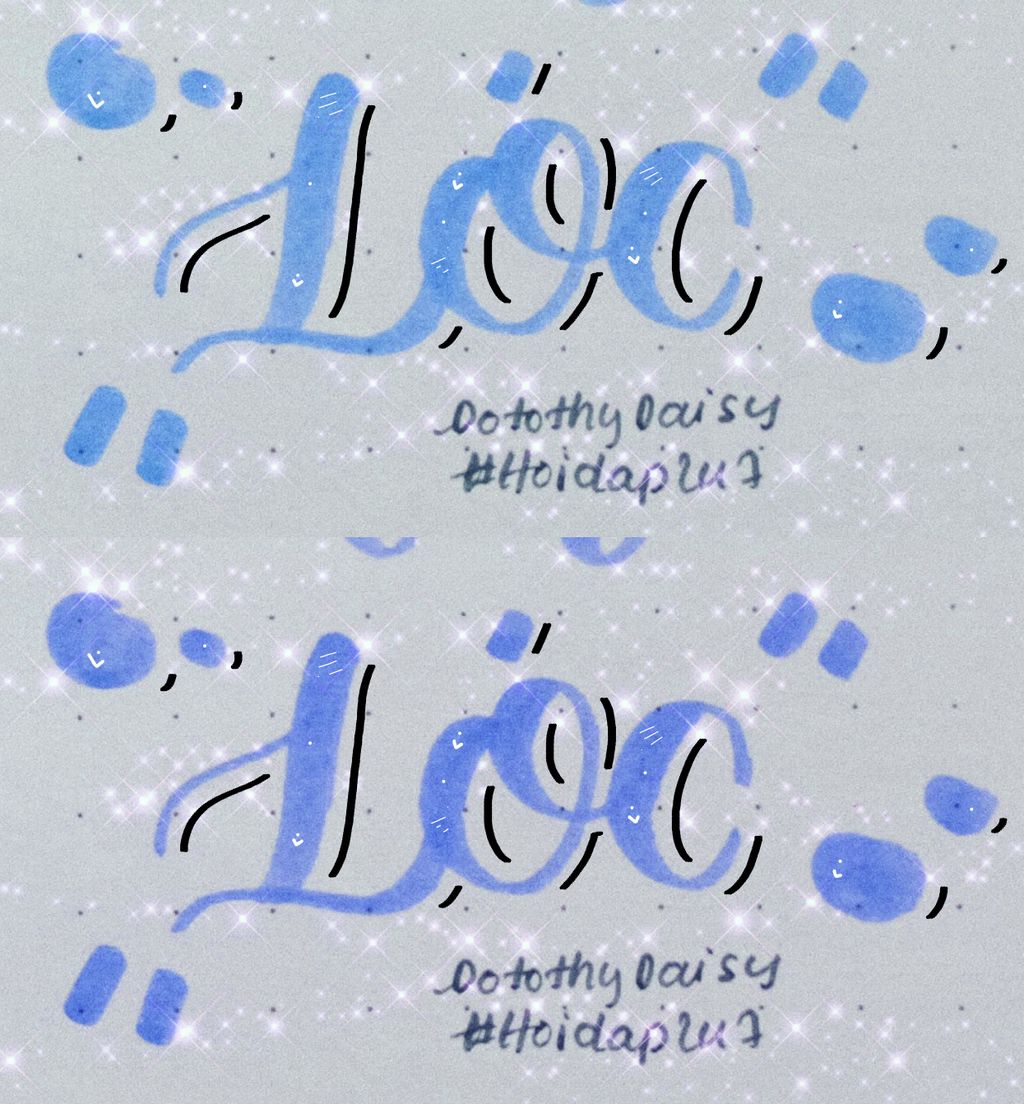 Lóc
Dotothy Daisy
#Hoidap247
Lóc
Dotothy Daisy
#Hoidap247